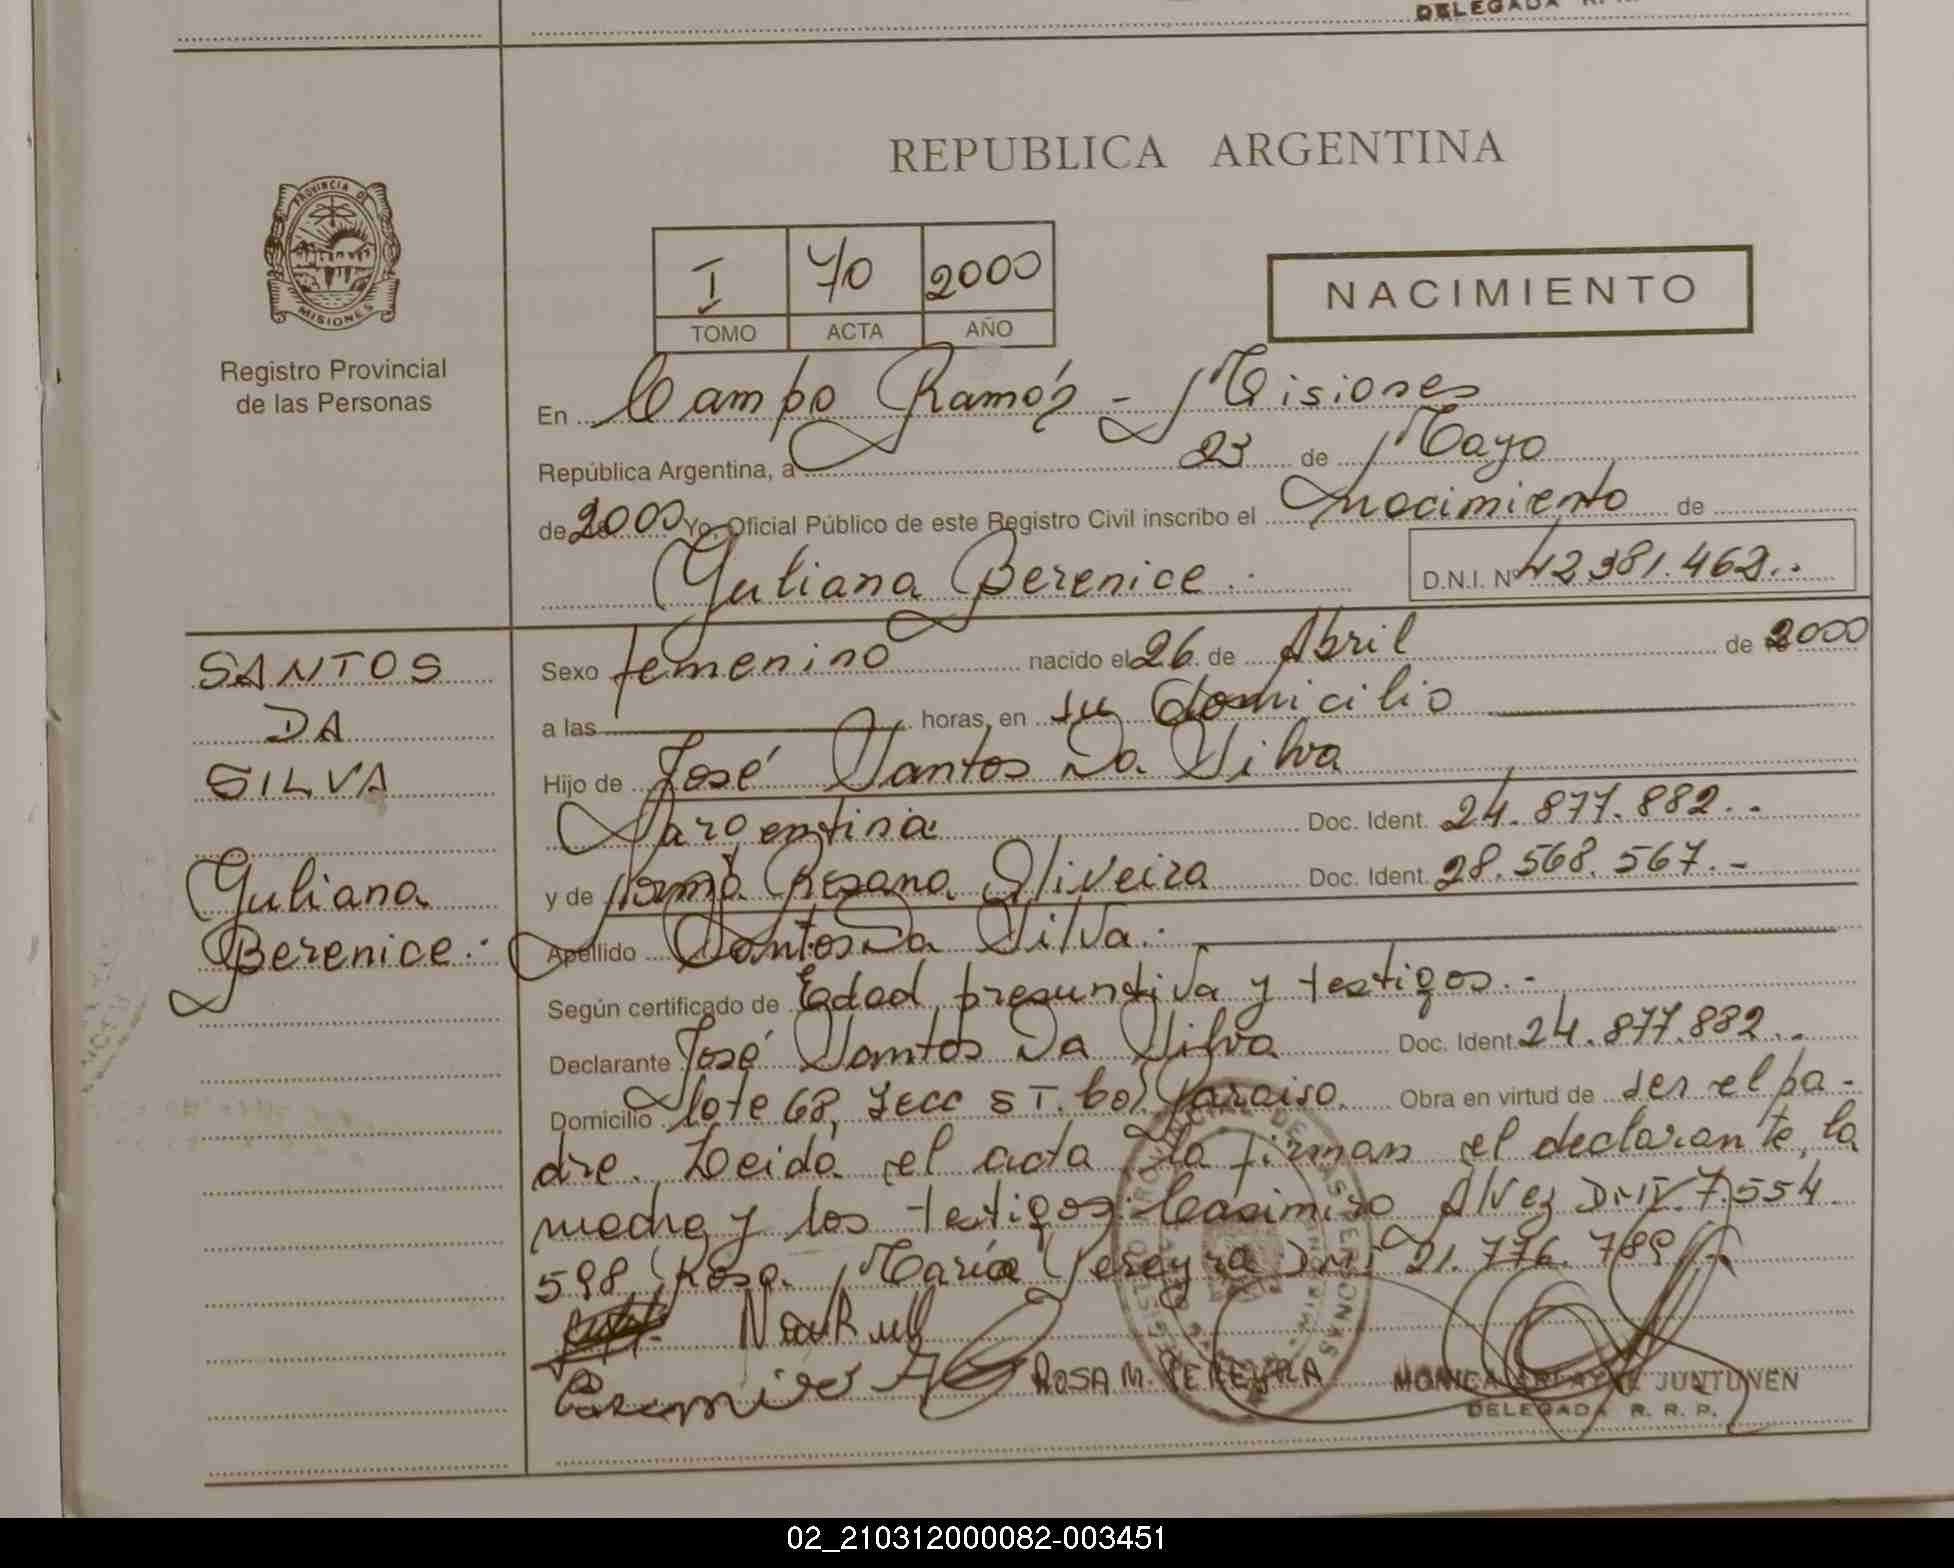 DELEGADA R. R.
REPUBLICA ARGENTINA
PROVINCIA DE
MISIONES
Registro Provincial
de las Personas
I 70 2000
TOMO ACTA AÑO
NACIMIENTO
En Campo Ramón - Misiones
República Argentina, a 23 de Mayo
de 2000 Yo, Oficial Público de este Registro Civil inscribo el nacimiento de
Yuliana Berenice.: D.N.I. Nº 42.381.462..
SANTOS
DA
SILVA
Yuliana
Berenice.:
Sexo femenino nacido el 26 de Abril de 2000
a las horas, en su domicilio
Hijo de José Santos Da Silva
argentina Doc. Ident. 24.877.882..
y de Norma Rosana Oliveira Doc. Ident. 28.568.567.-
Apellido Santos Da Silva.:
Según certificado de Edad presuntiva y testigos.-
Declarante José Santos Da Silva Doc. Ident. 24.877.882..
Domicilio lote 68, secc 5 T. Col. Paraiso. Obra en virtud de ser el pa-
dre. Leida el acta la firman el declarante, la
madre y los testigos: Casimiro Alvez DNI 7.554
598 Rosa María Pereyra DNI 21.776.789
ROSA M. PEREYRA
MONICA JUNTUNEN
DELEGADA R. R. P.
02_210312000082-003451